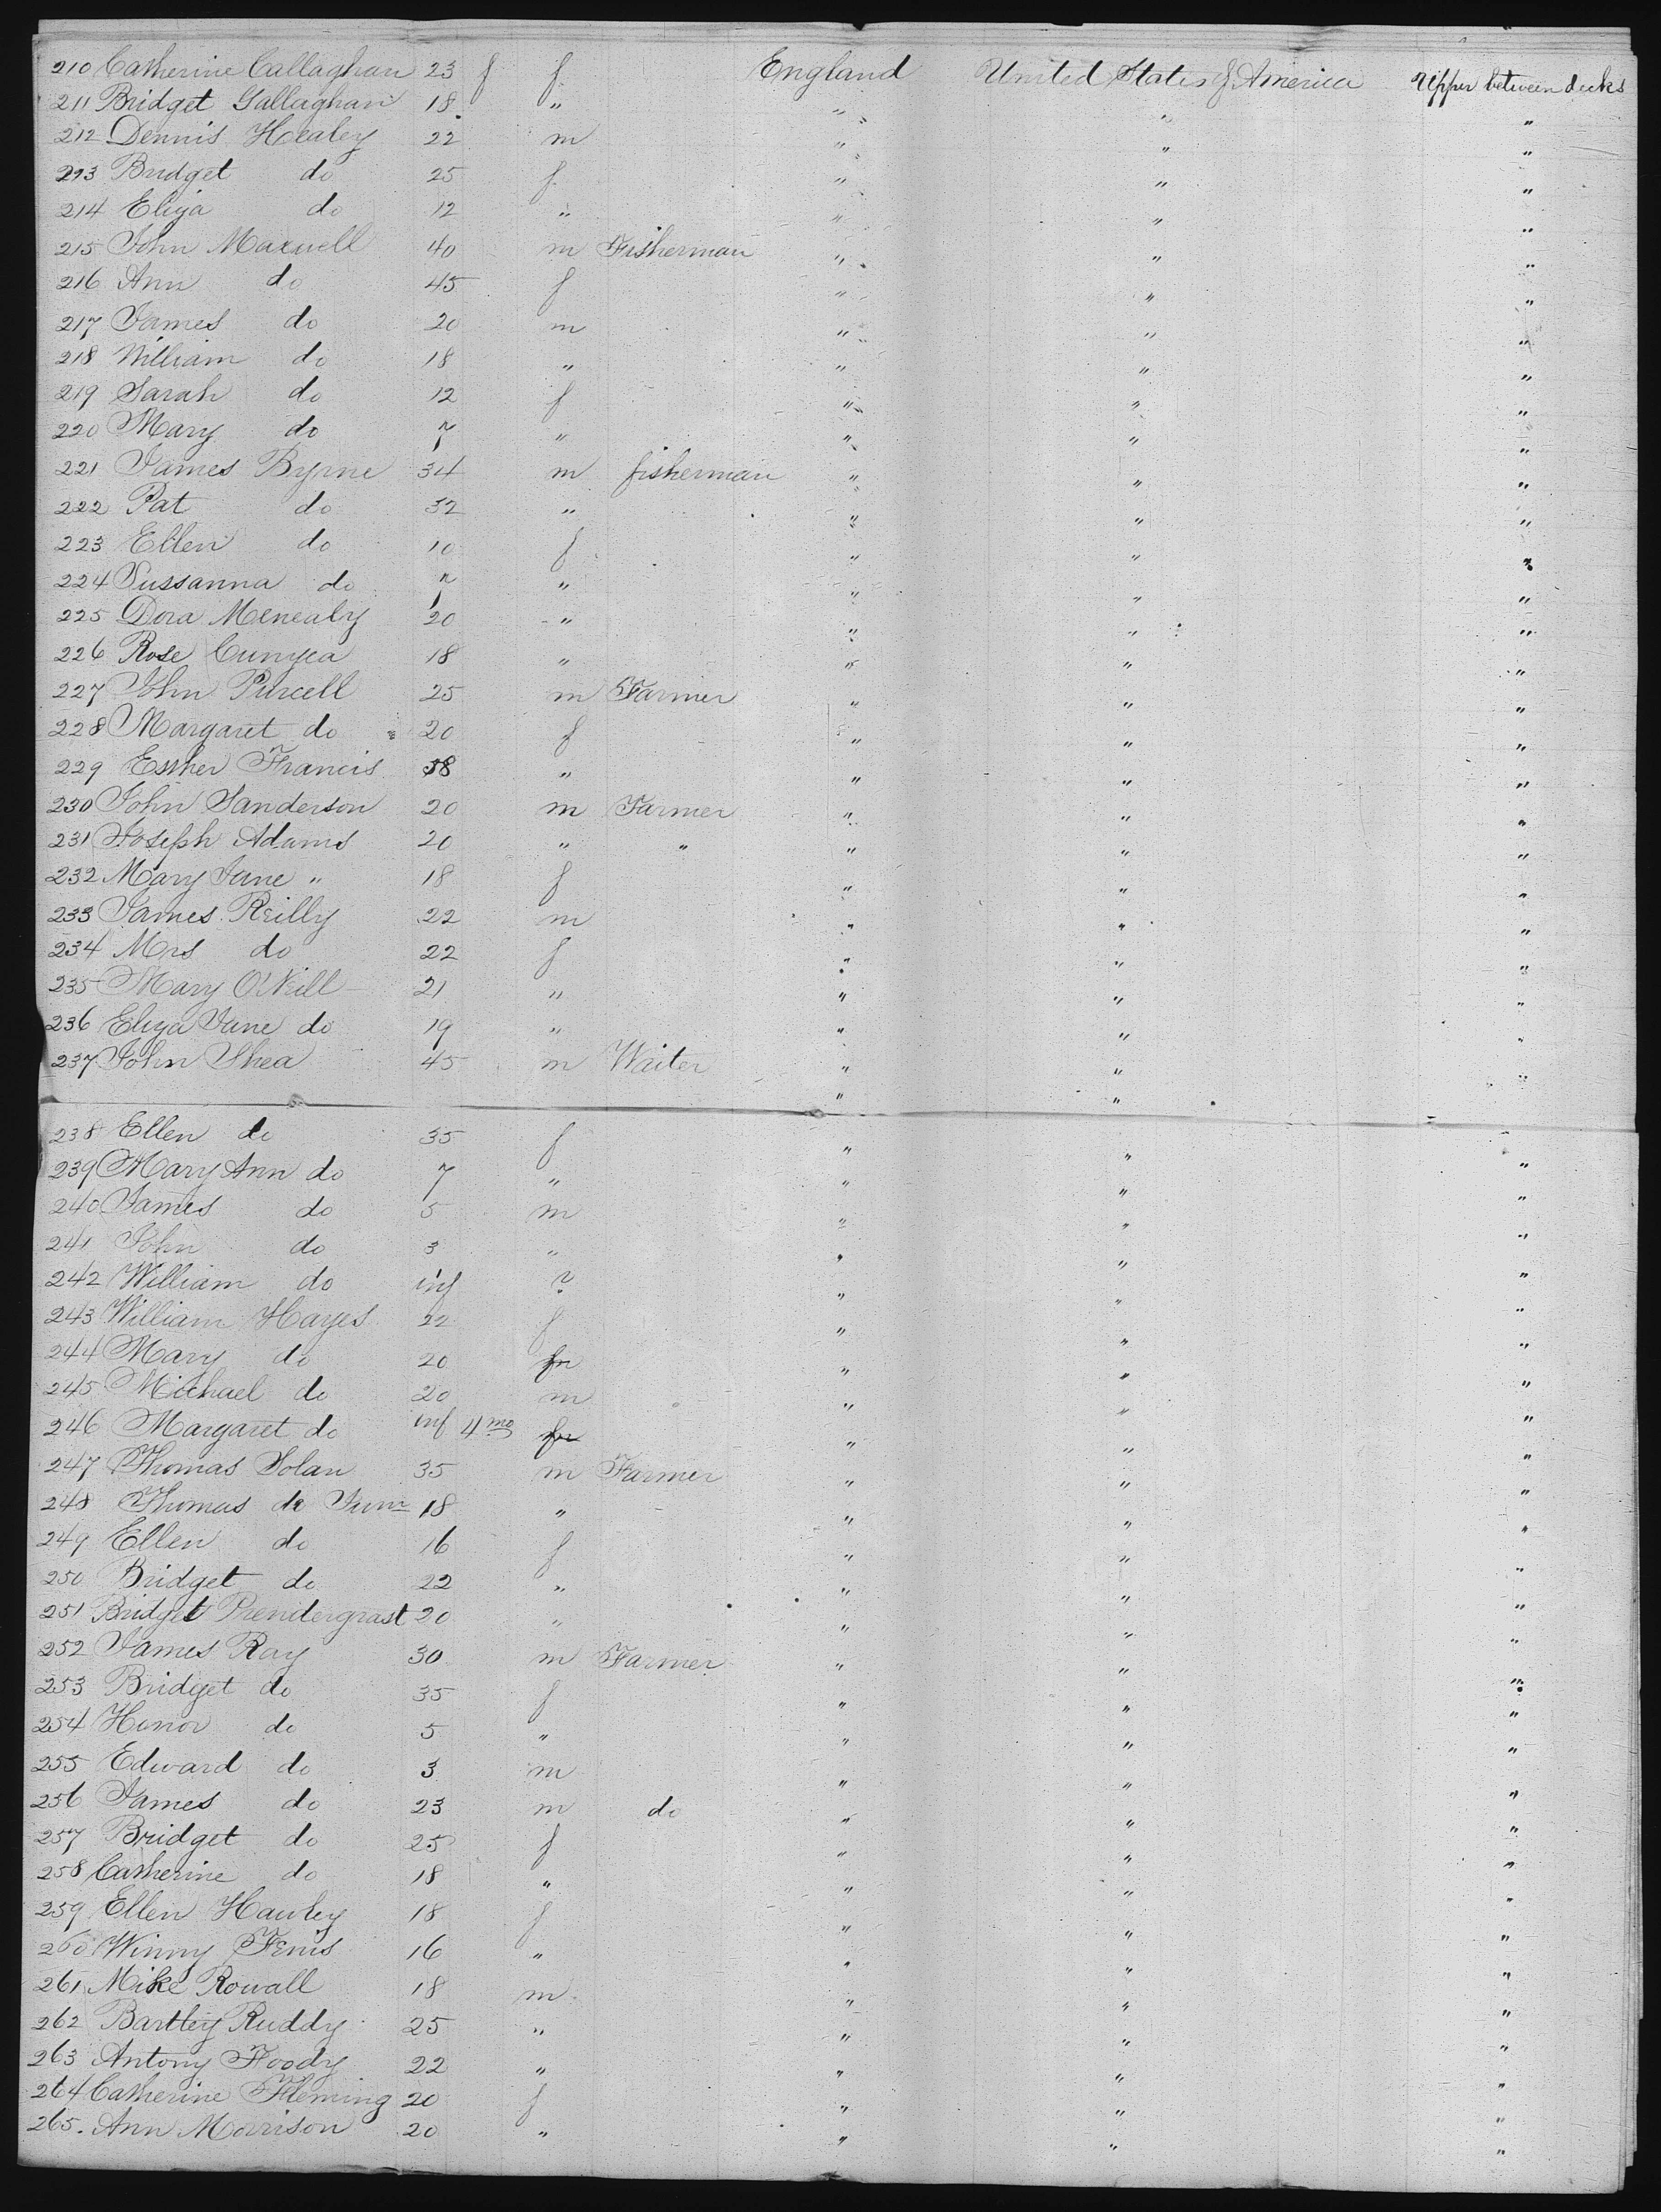 210 Catherine Callaghan 23 f f England United States of America Upper between decks
211 Bridget Gallaghan 18 " " " "
212 Dennis Healey 22 m " " "
213 Bridget do 25 f " " "
214 Eliza do 12 " " " "
215 John Maxwell 40 m Fisherman " " "
216 Ann do 45 f " " "
217 James do 20 m " " "
218 William do 18 " " " "
219 Sarah do 12 f " " "
220 Mary do 7 " " " "
221 James Byrne 34 m fisherman " " "
222 Pat do 32 " " " "
223 Ellen do 10 f " " "
224 Sussanna do 7 " " " "
225 Dora Menealy 20 " " " "
226 Rose 18 " " " "
227 John Purcell 25 m Farmer " " "
228 Margaret do 20 f " " "
229 Esther Francis 38 " " " "
230 John Sanderson 20 m Farmer " " "
231 Joseph Adams 20 " " " " "
232 Mary Jane " 18 f " " "
233 James Reilly 22 m " " "
234 Mrs do 22 f " " "
235 Mary O'Neill 21 " " " "
236 Eliza Jane do 19 " " " "
237 John Shea 45 m Waiter " " "
" "
238 Ellen do 35 f " " "
239 Mary Ann do 7 " " " "
240 James do 5 m " " "
241 John do 3 " " " "
242 William do inf ? " " "
243 William Hayes 22 f " " "
244 Mary do 20 " " "
245 Michael do 20 m " " "
246 Margaret do inf 4 mo " " "
247 Thomas Solan 35 m Farmer " " "
248 Thomas do Junr 18 " " " "
249 Ellen do 16 f " " "
250 Bridget do 22 " " " "
251 Bridget Prendergrast 20 " " " "
252 James Ray 30 m Farmer " " "
253 Bridget do 35 f " " "
254 Honor do 5 " " " "
255 Edward do 3 m " " "
256 James do 23 m do " " "
257 Bridget do 25 f " " "
258 Catherine do 18 " " " "
259 Ellen Hawley 18 f " " "
260 Winny Fenis 16 " " " "
261 Mike Rowall 18 m " " "
262 Bartley Ruddy 25 " " " "
263 Antony Foody 22 " " " "
264 Catherine Fleming 20 f " " "
265. Ann Morrison 20 " " " "